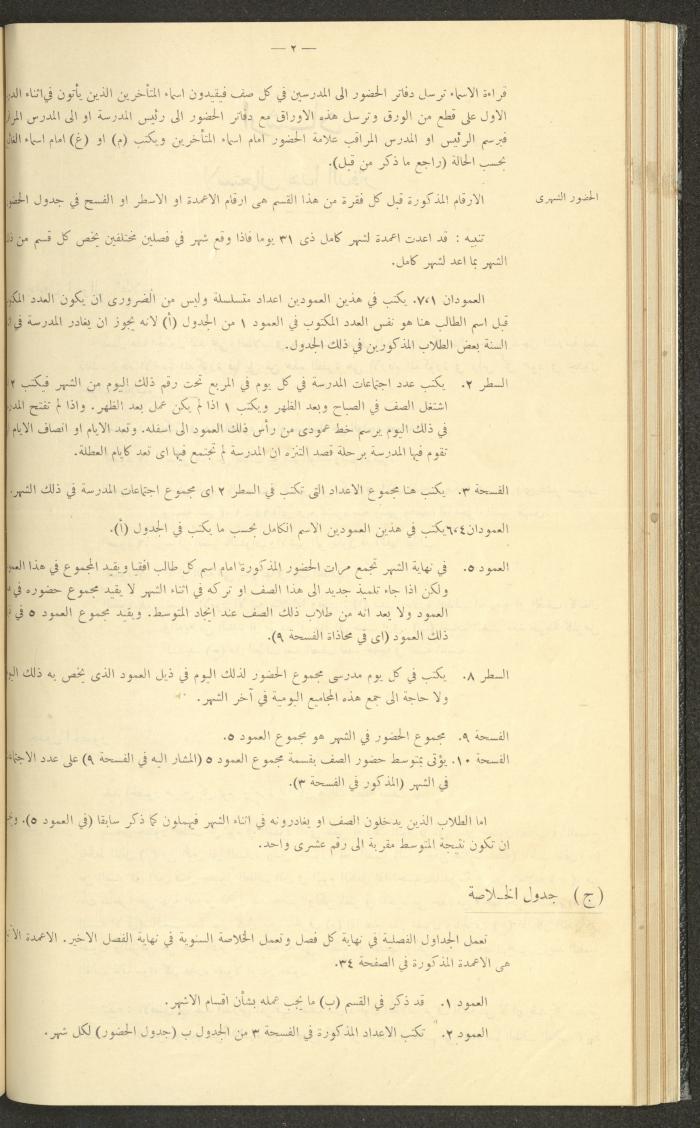 — ٢ —
قراءة الاسماء ترسل دفاتر الحضور الى المدرسين في كل صف فيقيدون اسماء المتأخرين الذين يأتون في اثناء
الاول على قطع من الورق وترسل هذه الاوراق مع دفاتر الحضور الى رئيس المدرسة او الى المدرس
فيرسم الرئيس او المدرس المراقب علامة الحضور امام اسماء المتأخرين ويكتب (م) او (غ) امام اسماء
بحسب الحالة (راجع ما ذكر من قبل).
الحضور الشهرى
الارقام المذكورة قبل كل فقرة من هذا القسم هى ارقام الاعمدة او الاسطر او الفسح في جدول
تنبيه : قد اعدت اعمدة لشهر كامل ذى ٣١ يوما فاذا وقع شهر في فصلين مختلفين يخص كل قسم من
الشهر بما اعد لشهر كامل.
العمودان ٧،١. يكتب في هذين العمودين اعداد متسلسلة وليس من الضرورى ان يكون العدد
قبل اسم الطالب هنا هو نفس العدد المكتوب في العمود ١ من الجدول (أ) لانه يجوز ان يغادر المدرسة في
السنة بعض الطلاب المذكورين في ذلك الجدول.
السطر ٢. يكتب عدد اجتماعات المدرسة في كل يوم في المربع تحت رقم ذلك اليوم من الشهر فيكتب ٢
اشتغل الصف في الصباح وبعد الظهر ويكتب ١ اذا لم يكن عمل بعد الظهر. واذا لم تفتح
في ذلك اليوم يرسم خط عمودى من رأس ذلك العمود الى اسفله. وتعد الايام او انصاف الايام
تقوم فيها المدرسة برحلة قصد التنزه ان المدرسة لم تجتمع فيها اى تعد كايام العطلة.
الفسحة ٣. يكتب هنا مجموع الاعداد التى تكتب في السطر ٢ اى مجموع اجتماعات المدرسة في ذلك الشهر.
العمودان ٦،٤ يكتب في هذين العمودين الاسم الكامل بحسب ما يكتب في الجدول (أ).
العمود ٥. في نهاية الشهر تجمع مرات الحضور المذكورة امام اسم كل طالب افقيا ويقيد المجموع في هذا
ولكن اذا جاء تلميذ جديد الى هذا الصف او تركه في اثناء الشهر لا يقيد مجموع حضوره في
العمود ولا يعد انه من طلاب ذلك الصف عند ايجاد المتوسط. ويقيد مجموع العمود ٥ في
ذلك العمود (اى في محاذاة الفسحة ٩).
السطر ٨. يكتب في كل يوم مدرسى مجموع الحضور لذلك اليوم في ذيل العمود الذى يخص به ذلك
ولا حاجة الى جمع هذه المجاميع اليومية في آخر الشهر.
الفسحة ٩. مجموع الحضور في الشهر هو مجموع العمود ٥.
الفسحة ١٠. يؤتى بمتوسط حضور الصف بقسمة مجموع العمود ٥ (المشار اليه في الفسحة ٩) على عدد
في الشهر (المذكور في الفسحة ٣).
اما الطلاب الذين يدخلون الصف او يغادرونه في اثناء الشهر فيهملون كما ذكر سابقا (في العمود ٥).
ان تكون نتيجة المتوسط مقربة الى رقم عشرى واحد.
(ج) جدول الخلاصة
تعمل الجداول الفصلية في نهاية كل فصل وتعمل الخلاصة السنوية في نهاية الفصل الاخير. الاعمدة
هى الاعمدة المذكورة في الصفحة ٣٤.
العمود ١. قد ذكر في القسم (ب) ما يجب عمله بشأن اقسام الاشهر.
العمود ٢. تكتب الاعداد المذكورة في الفسحة ٣ من الجدول ب (جدول الحضور) لكل شهر.